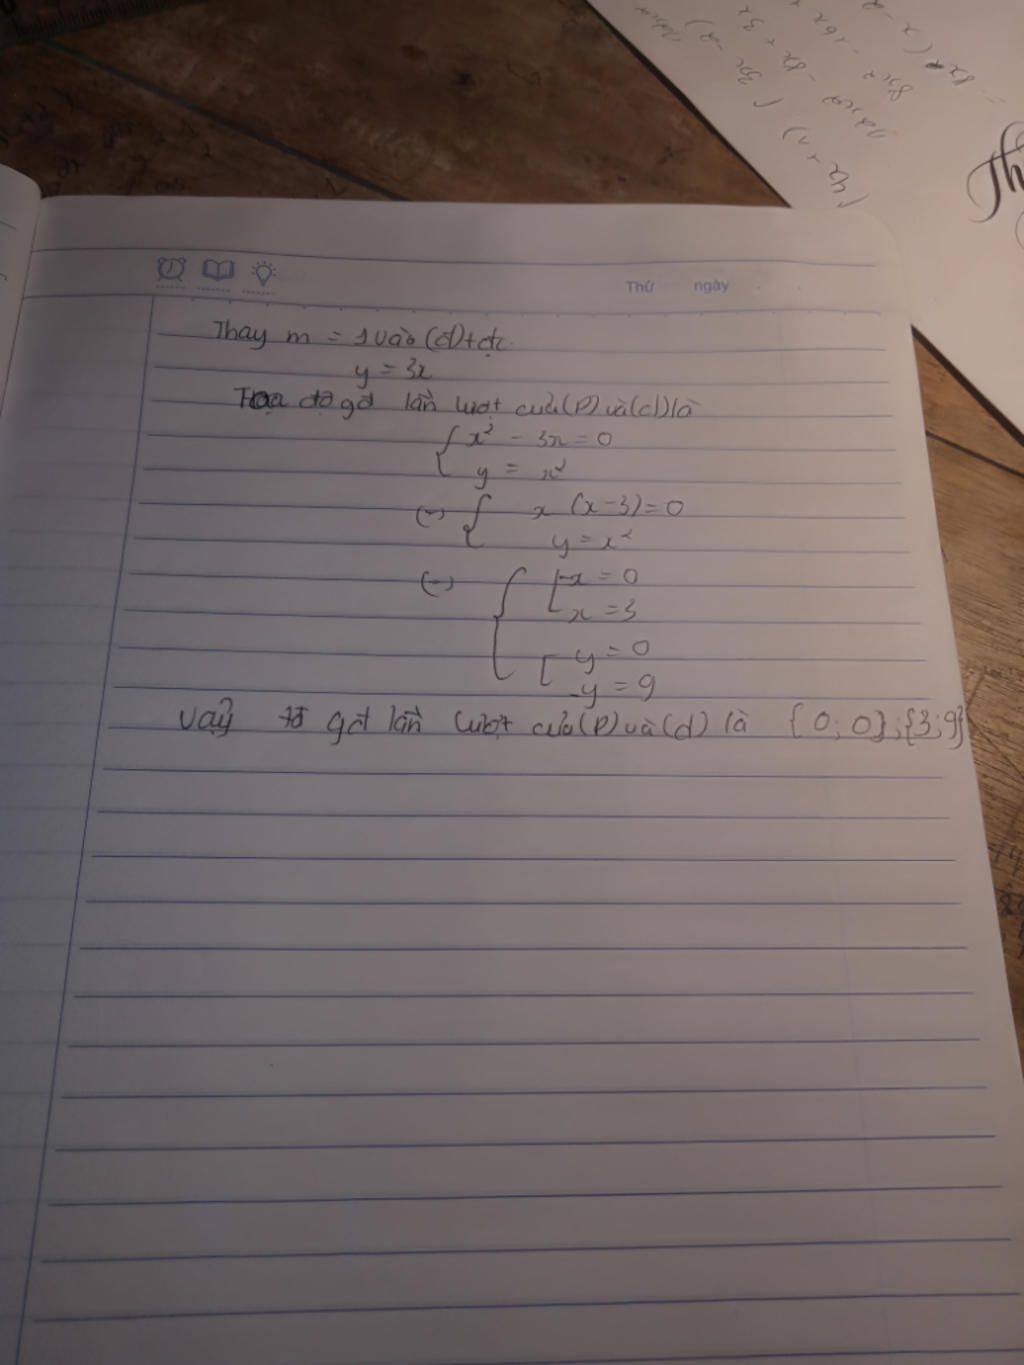 Thứ ngày
Thay m = 1 vào (d) + đc
y = 3x
Toạ độ gđ lần lượt của (P) và (d) là
{ x² - 3x = 0
y = x²
(-) { x (x-3) = 0
y = x²
(-) { [ x = 0
x = 3
[ y = 0
y = 9
Vậy tđ gđ lần lượt của (P) và (d) là {0; 0}; {3; 9}
Th